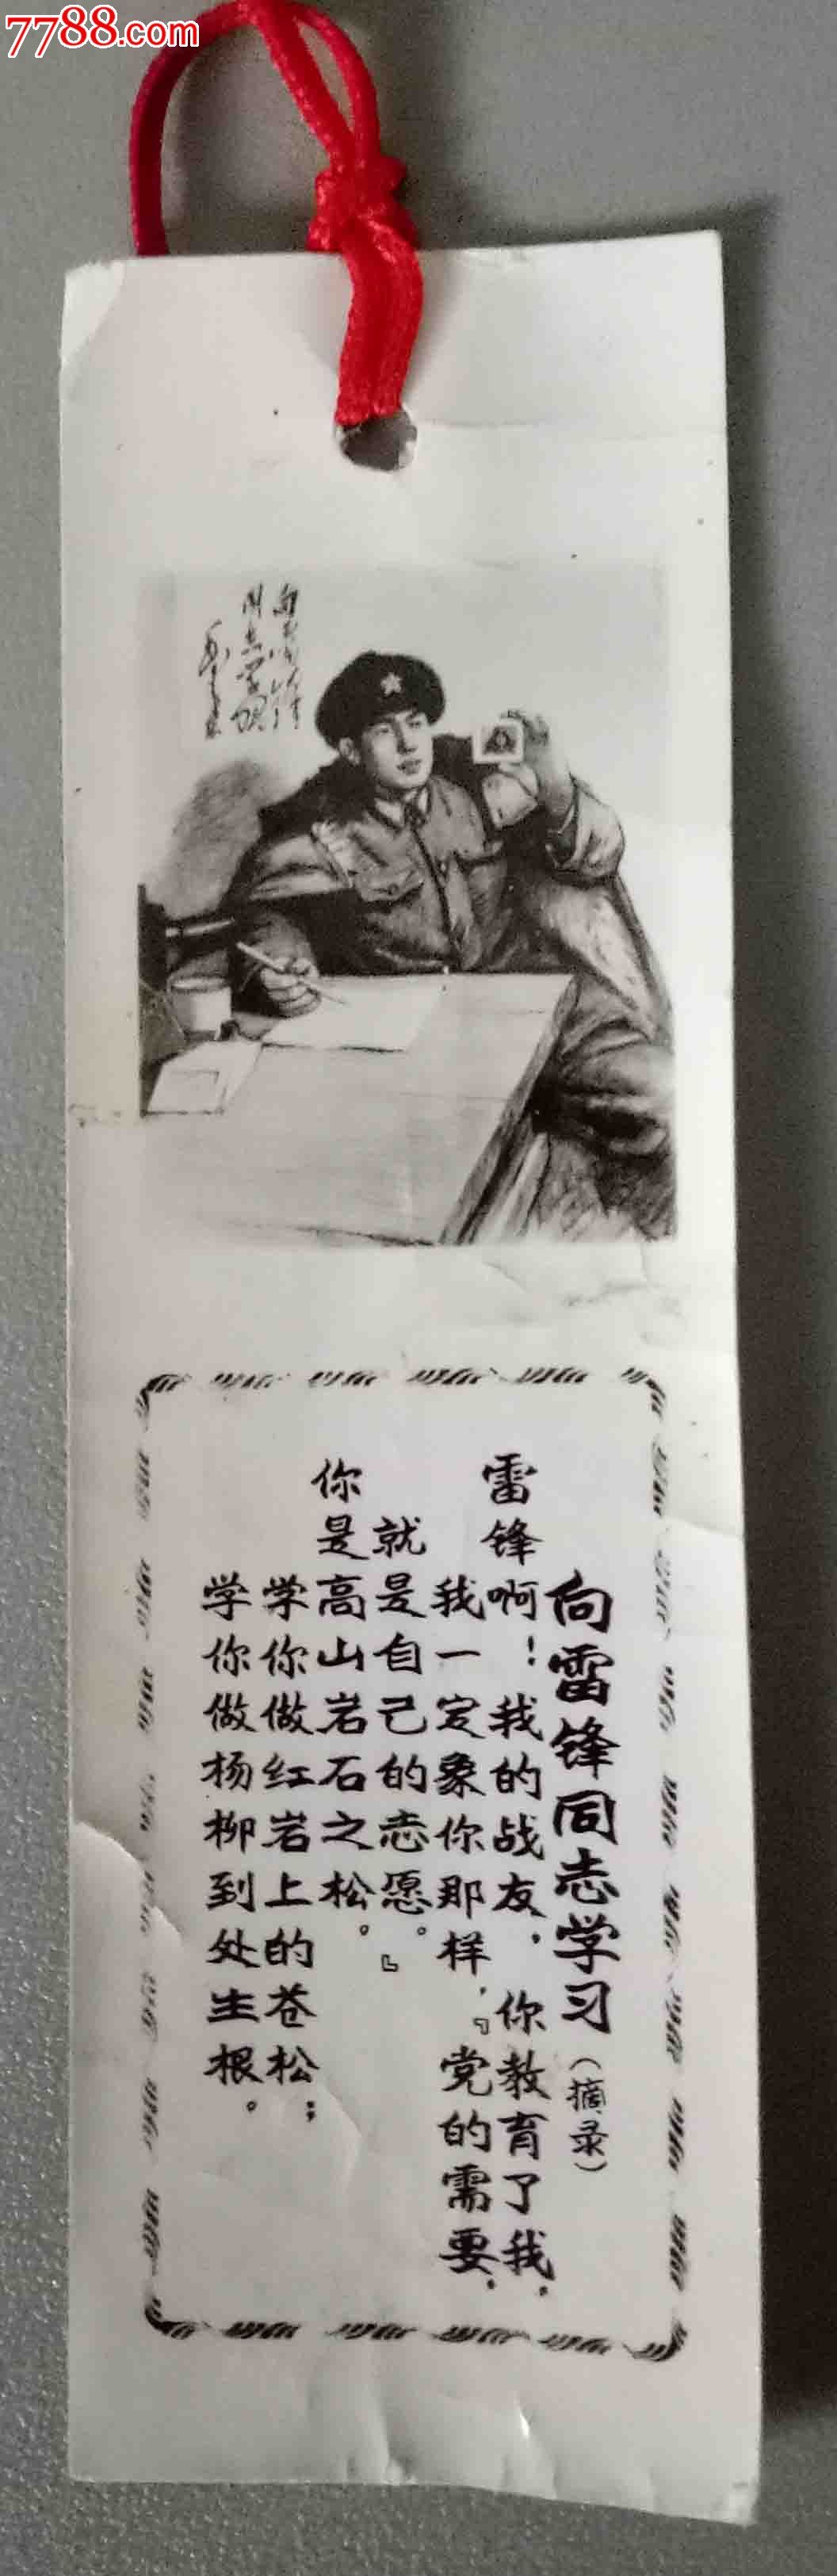 7788.com
向雷锋
同志学习
毛泽东
向雷锋同志学习（摘录）
雷锋啊！我的战友，你教育了我，
我一定象你那样，『党的需要，
就是自己的志愿。』
你是高山岩石之松。
学你做红岩上的苍松；
学你做杨柳到处生根。